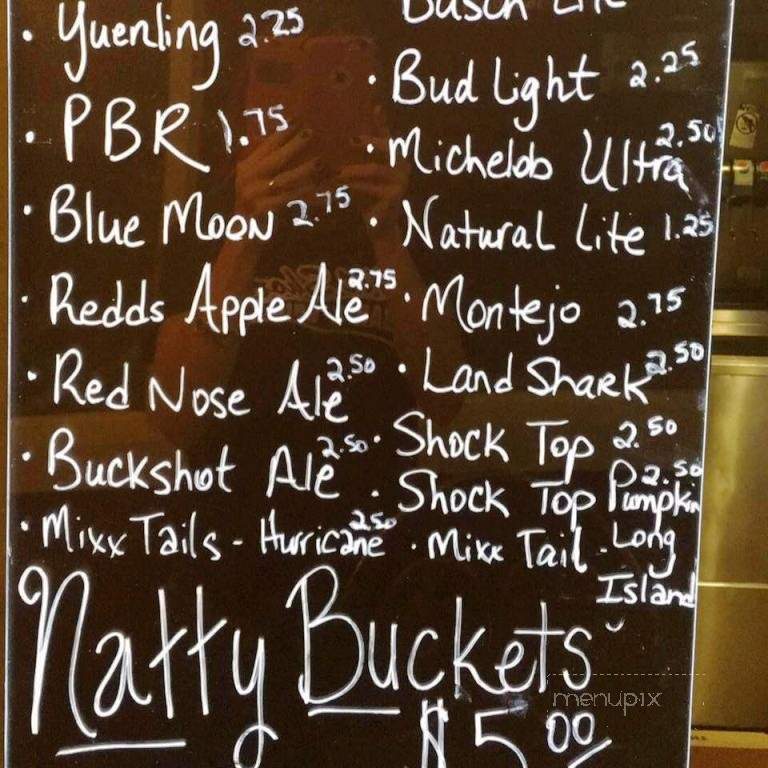 Busch Lite
· Yuenling 2.25
· Bud Light 2.25
· PBR 1.75
· Michelob Ultra 2.50
· Blue Moon 2.75
· Natural Lite 1.25
· Redds Apple Ale 2.75
· Montejo 2.75
· Red Nose Ale 2.50
· Land Shark 2.50
· Buckshot Ale 2.50
· Shock Top 2.50
· Shock Top Pumpkin 2.50
· Mixx Tails - Hurricane 2.50
· Mixx Tail - Long
Island
Natty Buckets
$5.00
menupix